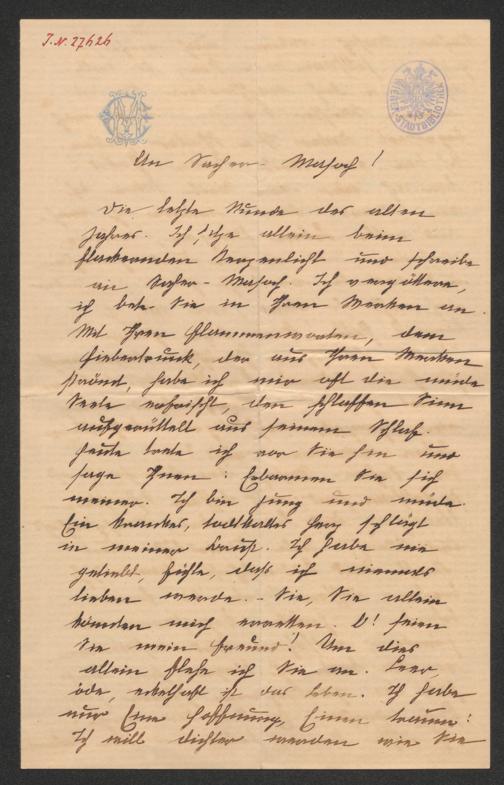 I. N. 27626
WIENER STADTBIBLIOTHEK
An Sacher-Masoch!
Die letzte Stunde des alten
Jahres. Ich sitze allein beim
flackernden Kerzenlicht und schreibe
an Sacher-Masoch. Ich vergöttere,
ich bete Sie in Ihren Werken an.
Mit Ihren Flammenworten, dem
Fiebertrunk, der aus Ihren Werken
strömt, habe ich mir oft die müde
Seele erfrischt, den schlaffen Sinn
aufgerüttelt aus seinem Schlaf.
Heute trete ich vor Sie hin und
sage Ihnen: Erbarmen Sie sich
meiner. Ich bin jung und müde.
Ein krankes, todtkaltes Herz schlägt
in meiner Brust. Ich habe nie
geliebt, fühle, daß ich niemals
lieben werde. - Sie, Sie allein
könnten mich erretten. O! seien
Sie mein Freund! Um dies
allein flehe ich Sie an. Leer,
öde, ekelhaft ist das Leben. Ich habe
nur Eine Hoffnung, Einen Traum:
Ich will Dichter werden wie Sie